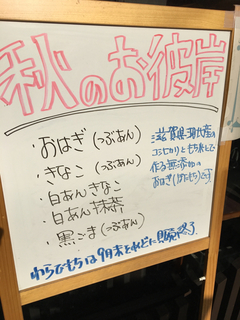 秋のお彼岸
・おはぎ(つぶあん)
・きなこ(つぶあん)
・白あんきなこ
・白あん抹茶
・黒ごま(つぶあん)
滋賀県
コシヒカリともち米で
作る無添加の
おはぎ(ぼたもち)です
わらびもちは9月末をめどに販売終了